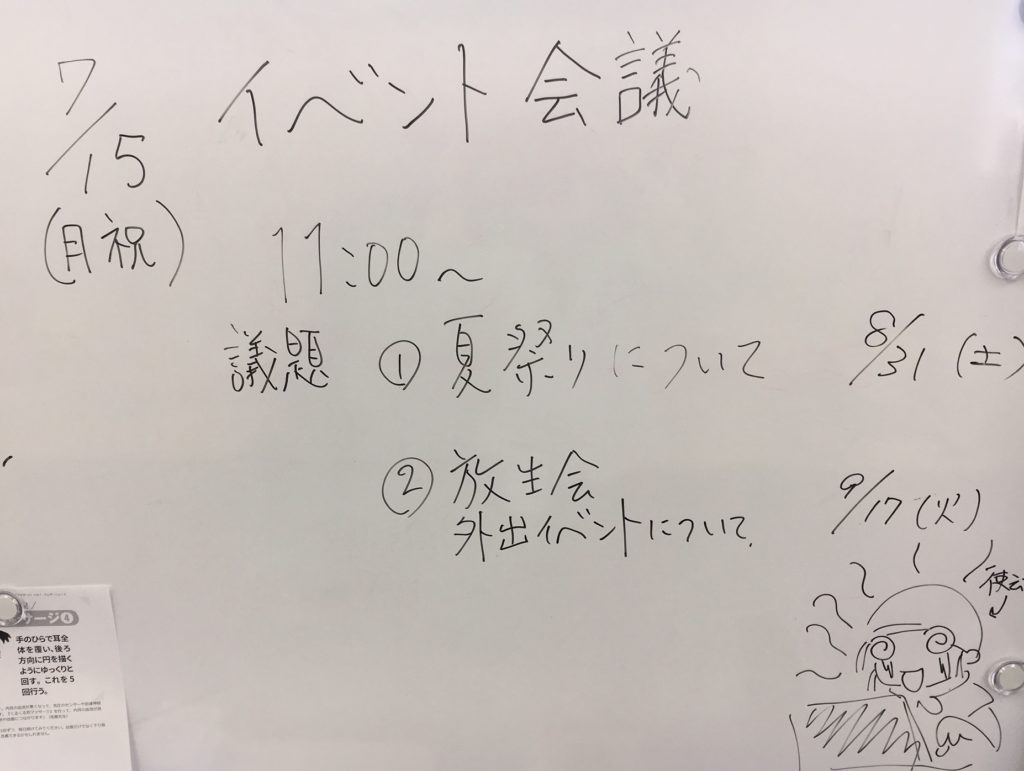 7/15 イベント会議
(月祝)
11:00~
議題 ①夏祭りについて 8/31 (土)
②放生会 9/17 (火)
外出イベントについて.
ージ④
手のひらで耳全
体を覆い、後ろ
方向に円を描く
ようにゆっくりと
回す。これを5
回行う。